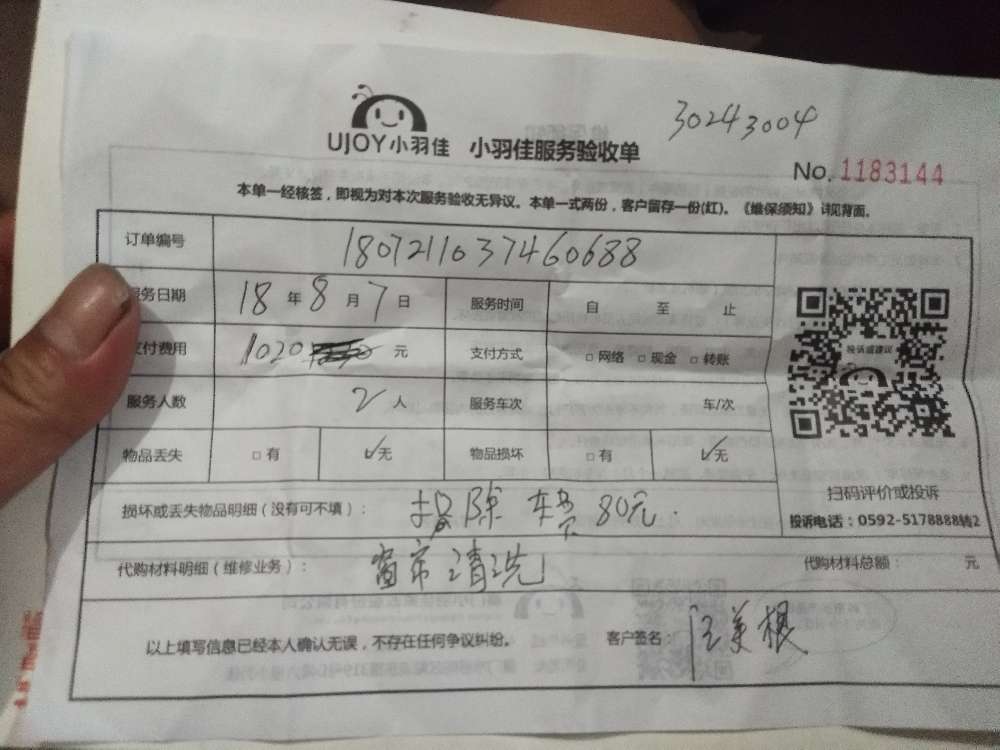 30243004
UJOY小羽佳 小羽佳服务验收单
No. 1183144
本单一经核签，即视为对本次服务验收无异议。本单一式两份，客户留存一份(红)。《维保须知》详见背面。
订单编号 180721103746068​8
服务日期 18年8月7日 服务时间 自 至 止
支付费用 1020 元 支付方式 □网络 □现金 □转账
服务人数 2人 服务车次 车/次
物品丢失 □有 ☑无 物品损坏 □有 ☑无
扫码评价或投诉
损坏或丢失物品明细（没有可不填）： 扣除 车费 80元.
投诉电话：0592-5178888转2
代购材料明细（维修业务）： 窗帘清洗 代购材料总额： 元
以上填写信息已经本人确认无误，不存在任何争议纠纷。 客户签名： 汪美根